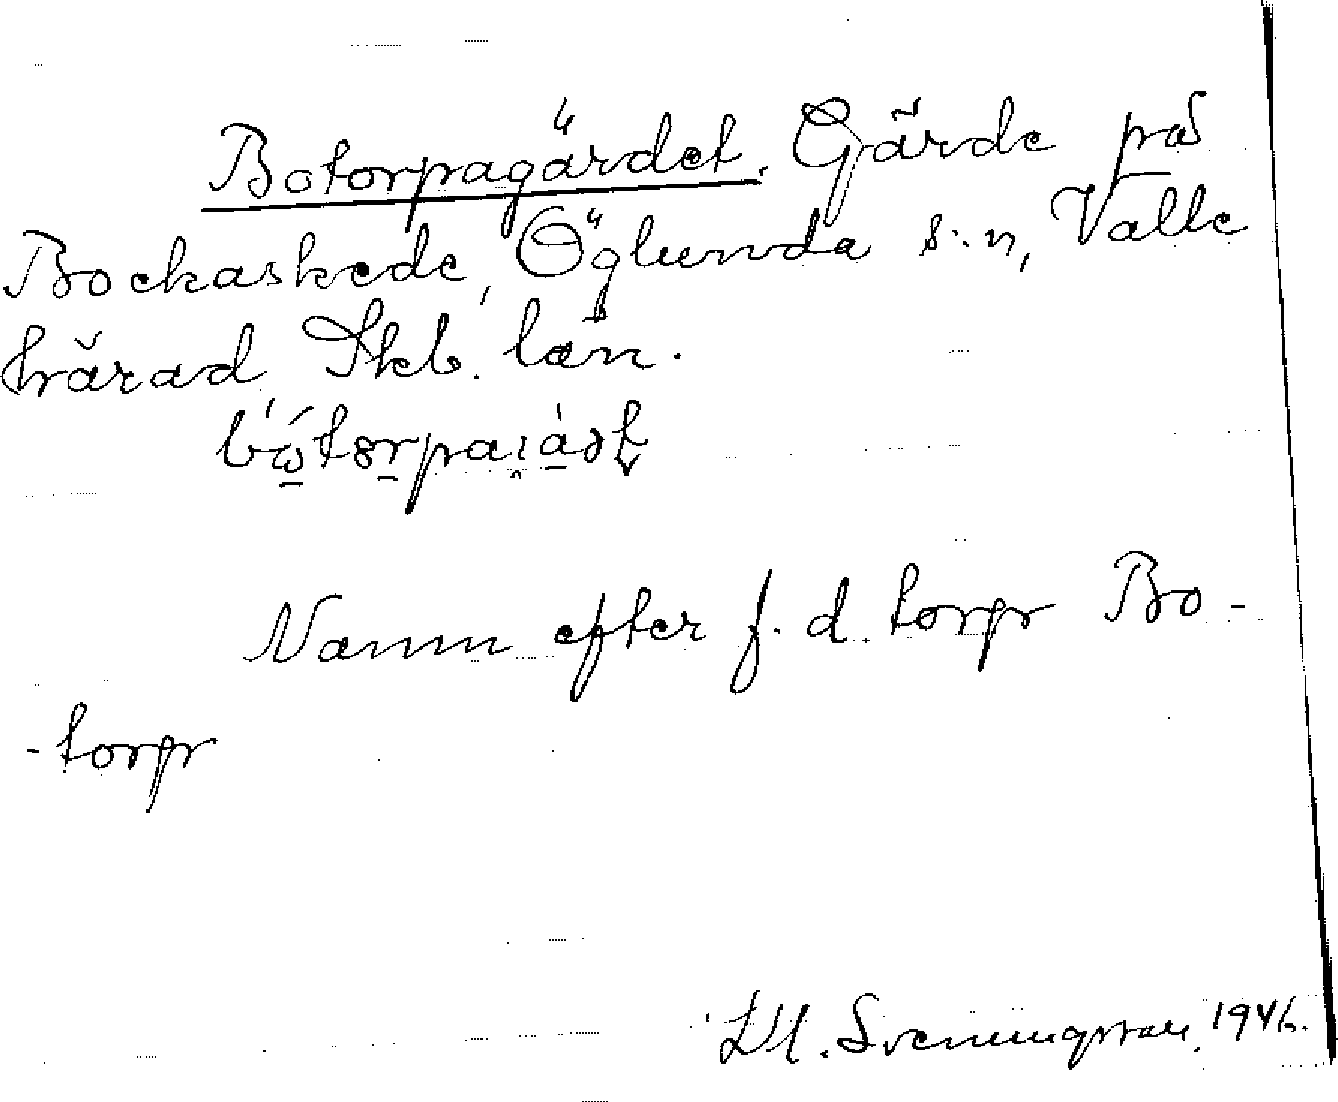 Botorpagärdet. Gärde på
Bockaskede, Öglunda s:n, Valle
härad, Skb. län.
Namn efter f. d. torp Bo-
-torp
Sveningsson, 1946.